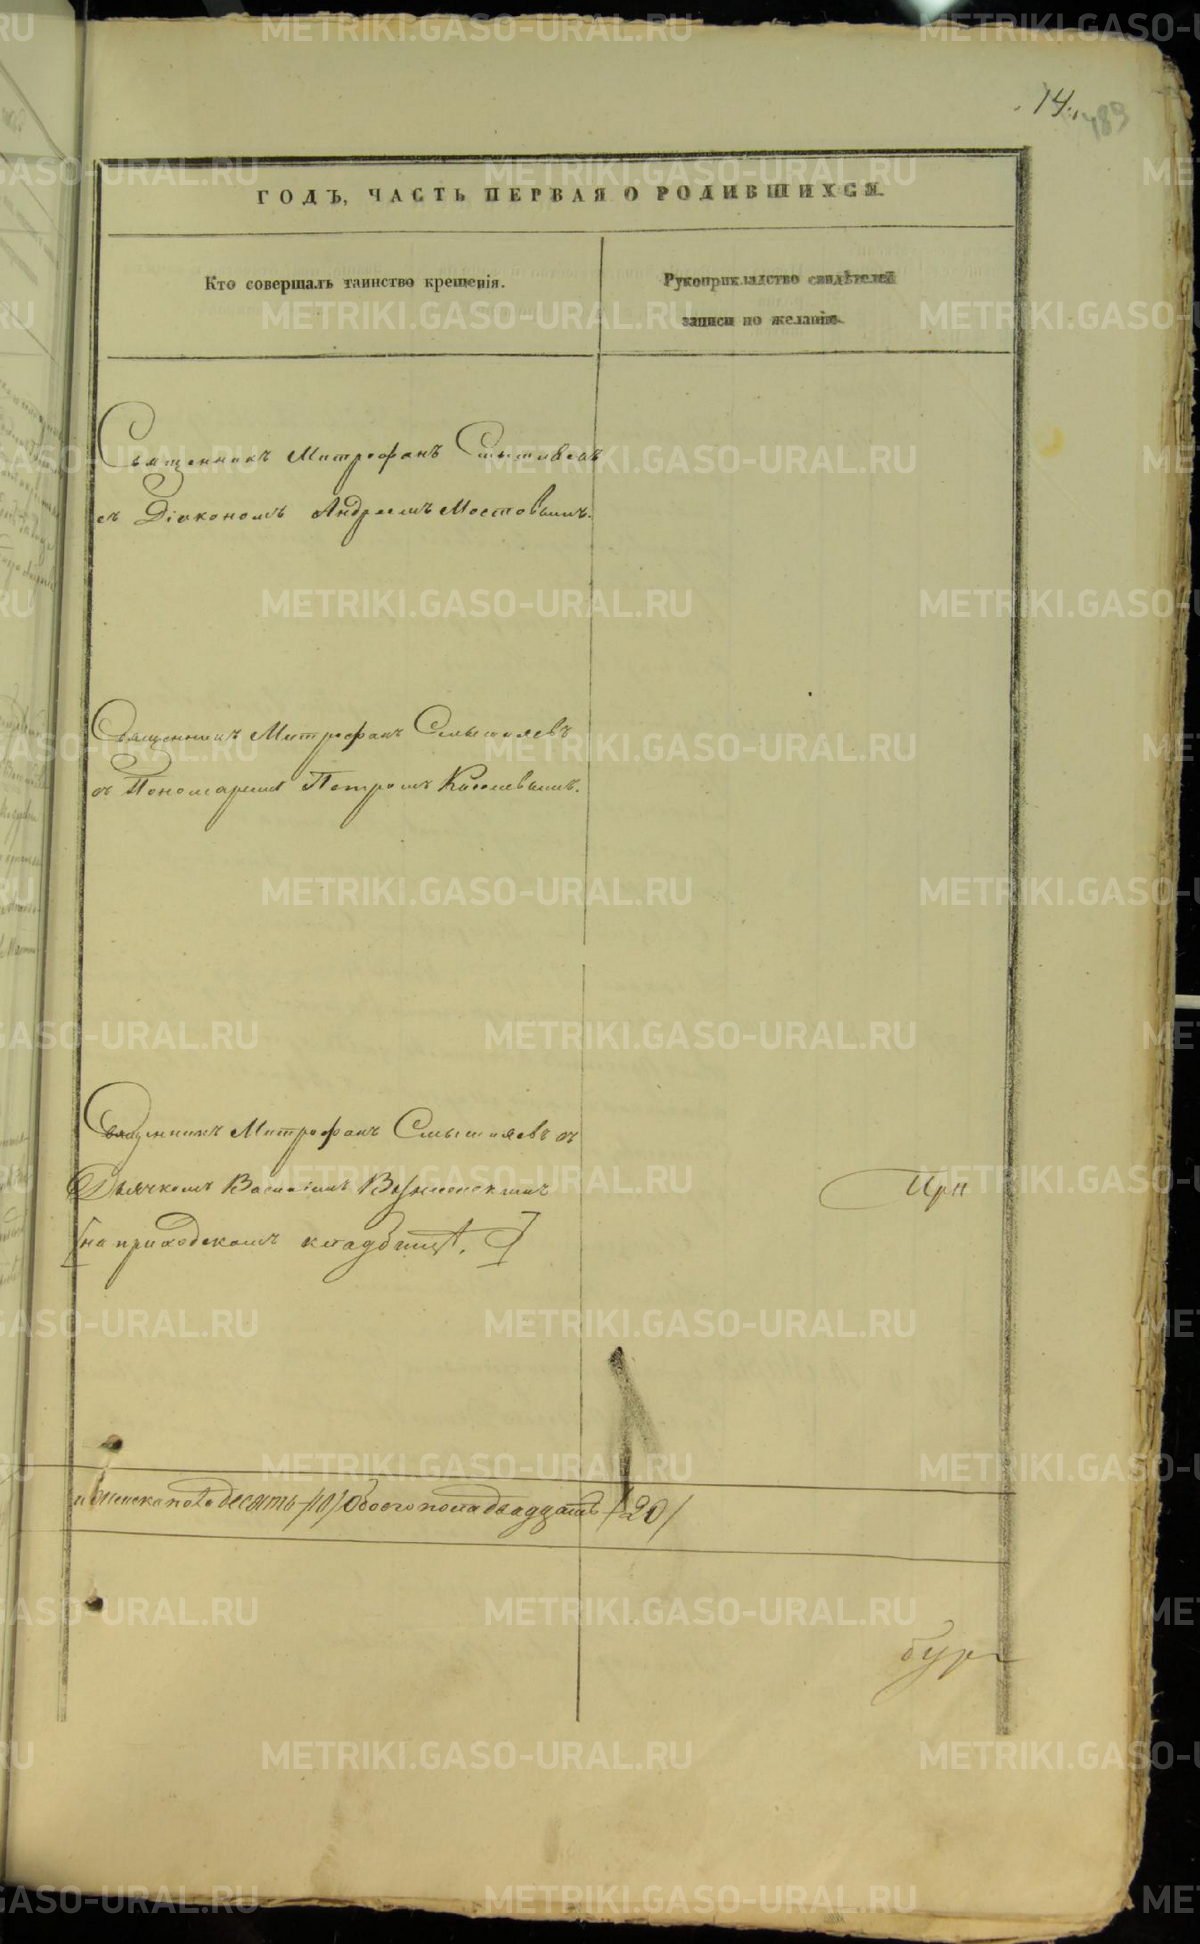 14.
489
ГОДЪ, ЧАСТЬ ПЕРВАЯ О РОДИВШИХСЯ.
Кто совершалъ таинство крещенія.
Рукоприкладство свидѣтелей
записи по желанію.
Священникъ Митрофанъ Смышляевъ
съ Діакономъ Андреемъ Мостовымъ.
Священникъ Митрофанъ Смышляевъ
съ Пономаремъ Петромъ Киселевымъ.
Священникъ Митрофанъ Смышляевъ съ
Дьячкомъ Василіемъ Вознесенскимъ
[на приходскомъ кладбищѣ.]
и женска пола десять /10/ Обоего пола двадцать /20/
METRIKI.GASO-URAL.RU